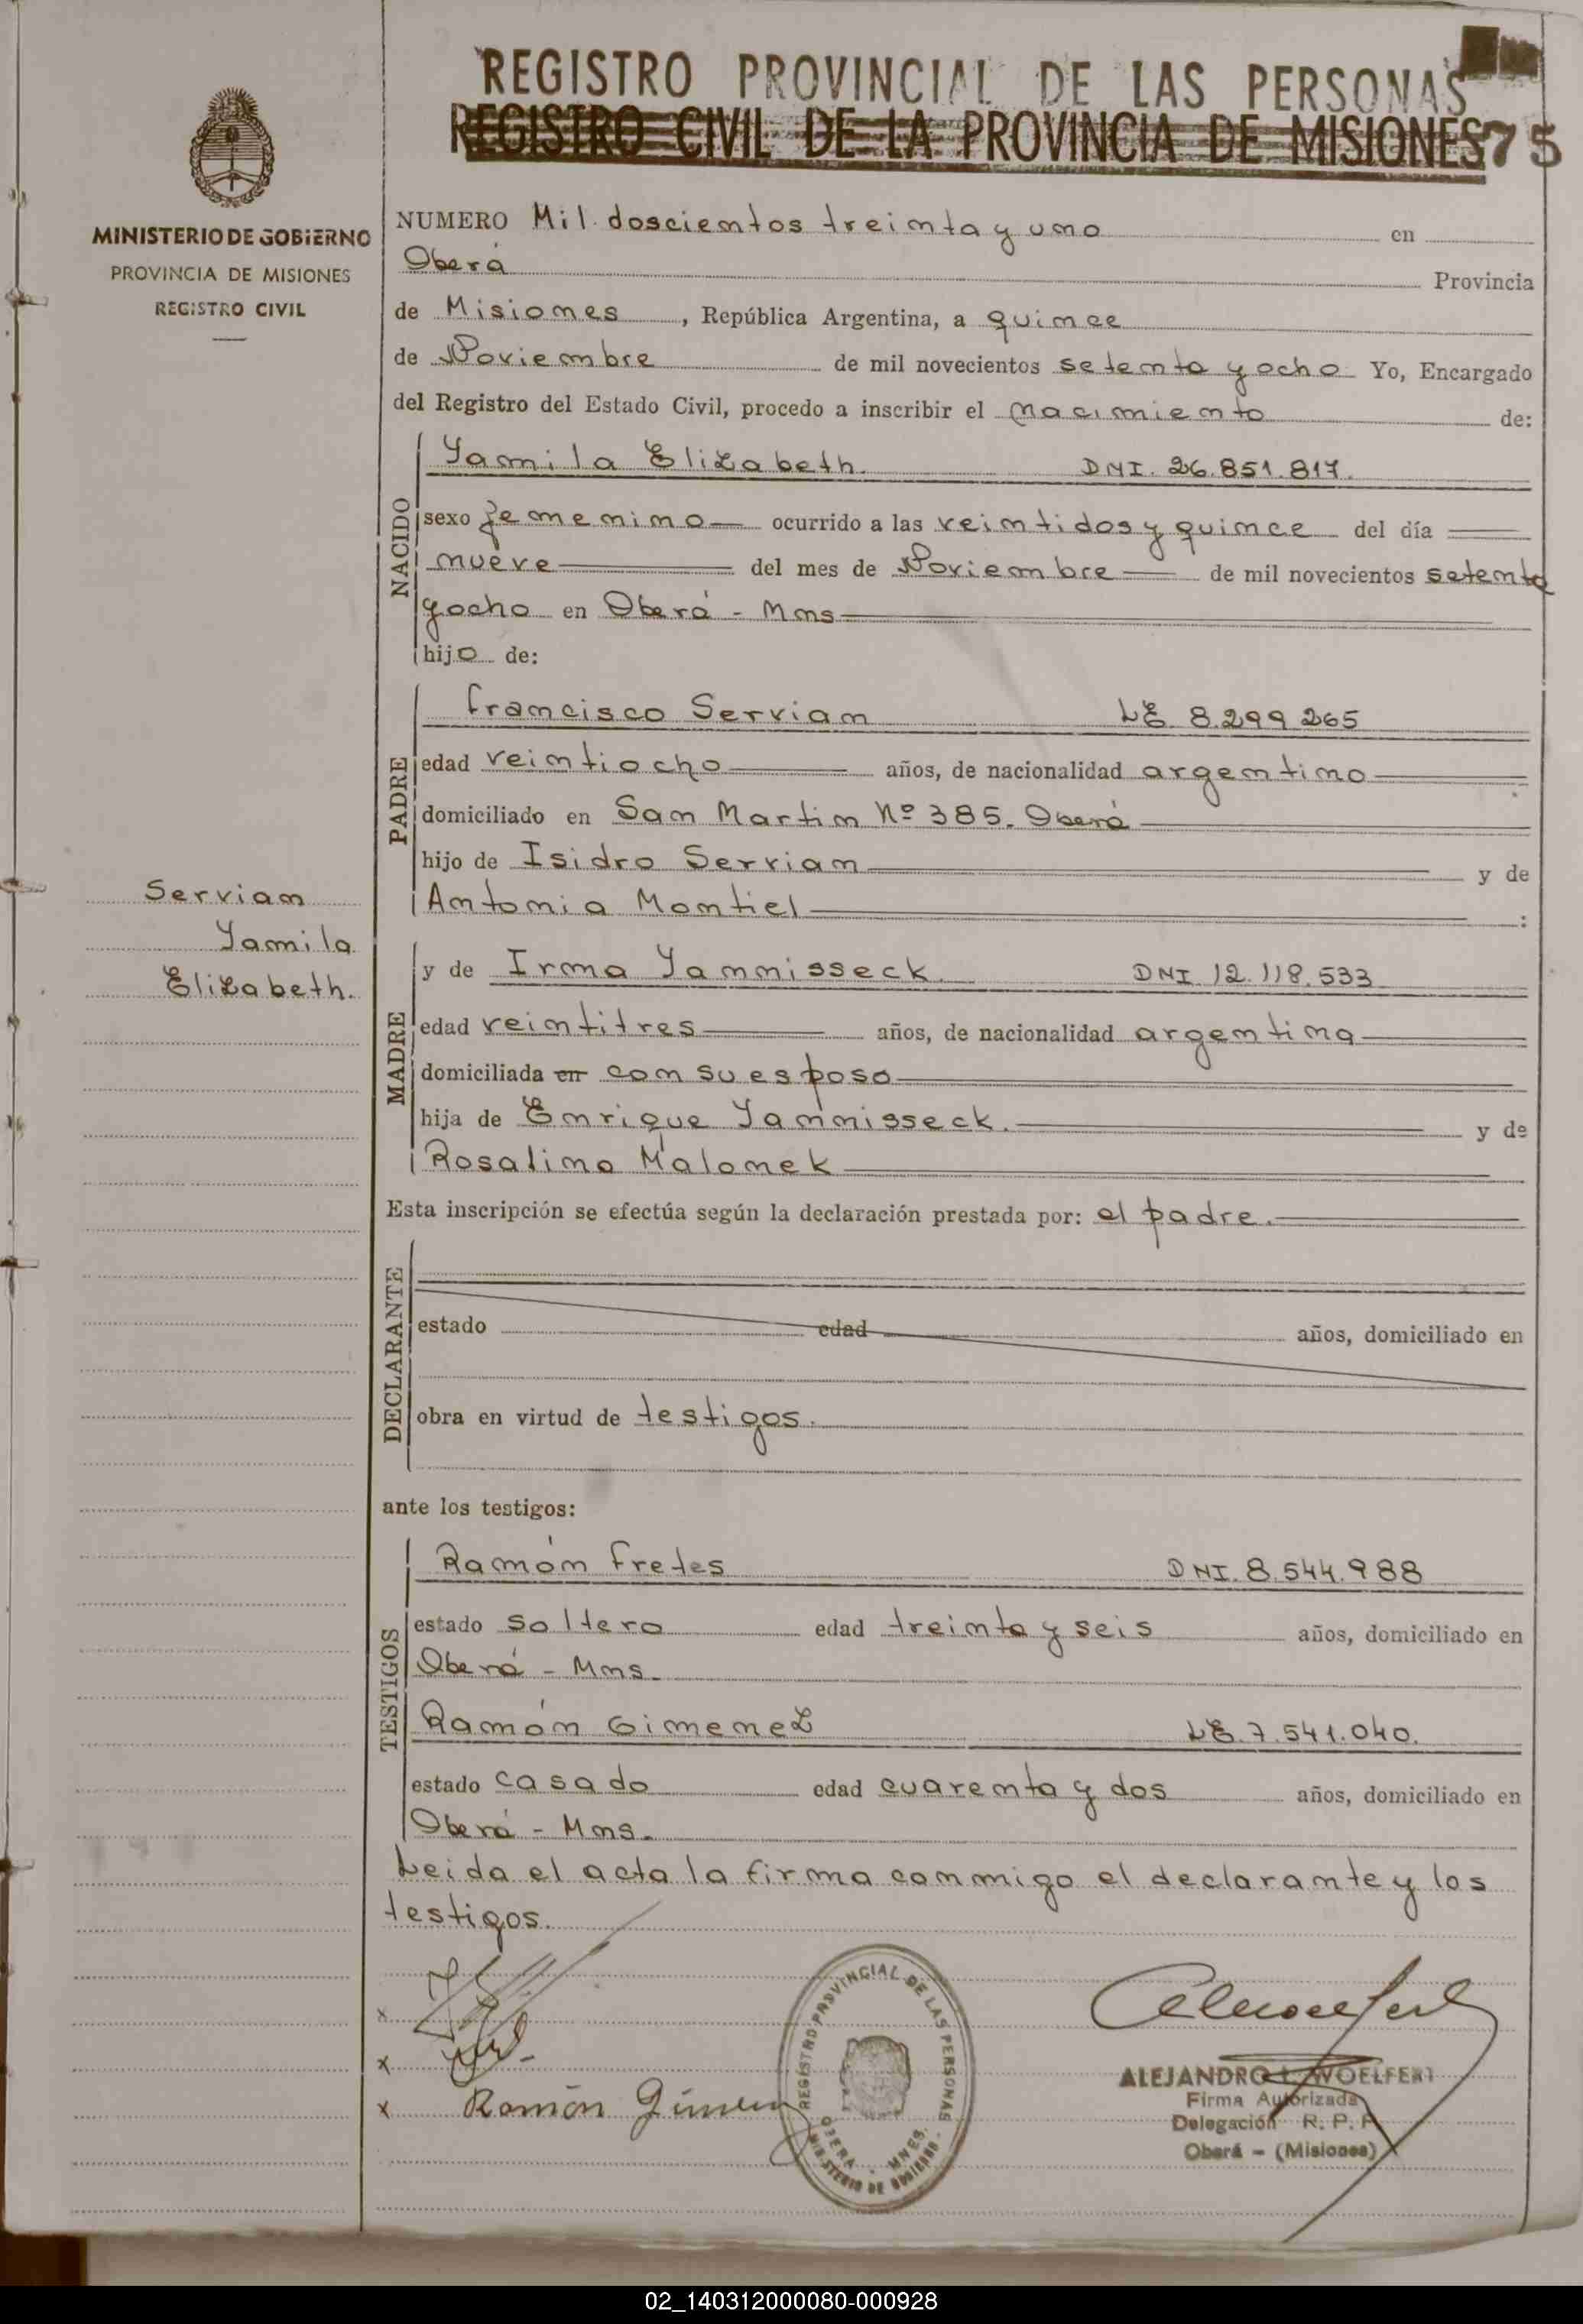 REGISTRO PROVINCIAL DE LAS PERSONAS
REGISTRO CIVIL DE LA PROVINCIA DE MISIONES 75
MINISTERIO DE GOBIERNO
PROVINCIA DE MISIONES
REGISTRO CIVIL
NUMERO Mil doscientos treinta y uno en
Oberá Provincia
de Misiones, República Argentina, a quince
de Noviembre de mil novecientos setenta y ocho Yo, Encargado
del Registro del Estado Civil, procedo a inscribir el nacimiento de:
NACIDO
Yamila Elizabeth. DNI. 26.851.817.
sexo femenino ocurrido a las veintidos y quince del día
nueve del mes de Noviembre de mil novecientos setenta
y ocho en Oberá - Mnes
hijo de:
PADRE
Francisco Servian LE. 8.299.265
edad veintiocho años, de nacionalidad argentino
domiciliado en San Martin Nº 385. Oberá
hijo de Isidro Servian y de
Antonia Montiel :
Servian
Yamila
Elizabeth.
MADRE
y de Irma Yannisseck. DNI 12.118.533
edad veintitres años, de nacionalidad argentina
domiciliada en con su esposo
hija de Enrique Yannisseck. y de
Rosalina Malonek
Esta inscripción se efectúa según la declaración prestada por: el padre.
DECLARANTE
estado edad años, domiciliado en
obra en virtud de testigos.
ante los testigos:
TESTIGOS
Ramón Fretes DNI. 8.544.988
estado soltero edad treinta y seis años, domiciliado en
Oberá - Mns.
Ramón Gimenez LE. 7.541.040.
estado casado edad cuarenta y dos años, domiciliado en
Oberá - Mns.
Leida el acta la firma conmigo el declarante y los
testigos.
x
x
x Ramón Gimen
REGISTRO PROVINCIAL DE LAS PERSONAS
OBERA - MNES.
MINISTERIO DE GOBIERNO
ALEJANDRO L. WOELFERT
Firma Autorizada
Delegación R. P. P.
Oberá - (Misiones)
02_140312000080-000928